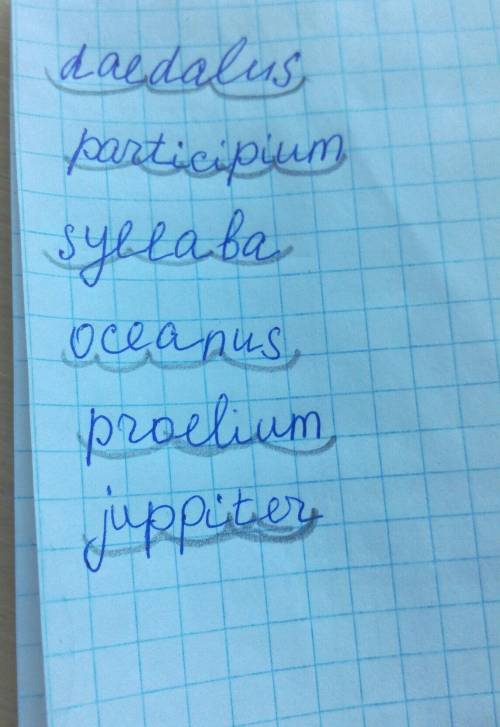 daedalus
participium
syllaba
oceanus
proelium
juppiter